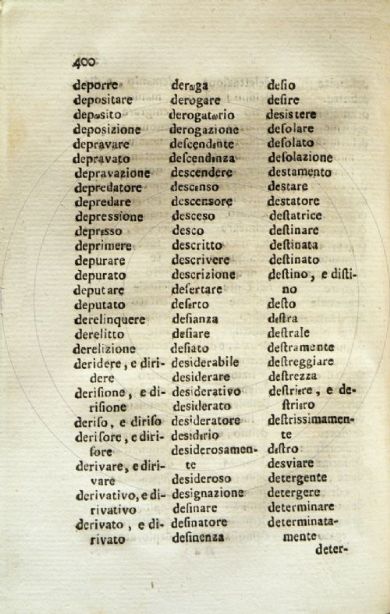 400
deporre
depositare
deposito
deposizione
depravare
depravato
depravazione
depredatore
depredare
depressione
depresso
deprimere
depurare
depurato
deputare
deputato
derelinquere
derelitto
derelizione
deridere, e diri-
dere
derisione, e di-
risione
deriso, e diriso
derisore, e diri-
sore
derivare, e diri-
vare
derivativo, e di-
rivativo
derivato, e di-
rivato
deroga
derogare
derogatorio
derogazione
descendente
descendenza
descendere
descenso
descensore
desceso
desco
descritto
descrivere
descrizione
desertare
deserto
desianza
desiare
desiato
desiderabile
desiderare
desiderativo
desiderato
desideratore
desiderio
desiderosamen-
te
desideroso
designazione
desinare
desinatore
desinenza
desio
desire
desistere
desolare
desolato
desolazione
destamento
destare
destatore
destatrice
destinare
destinata
destinato
destino, e disti-
no
desto
destra
destrale
destramente
destreggiare
destrezza
destriere, e de-
striero
destrissimamen-
te
destro
desviare
detergente
detergere
determinare
determinata-
mente
deter-